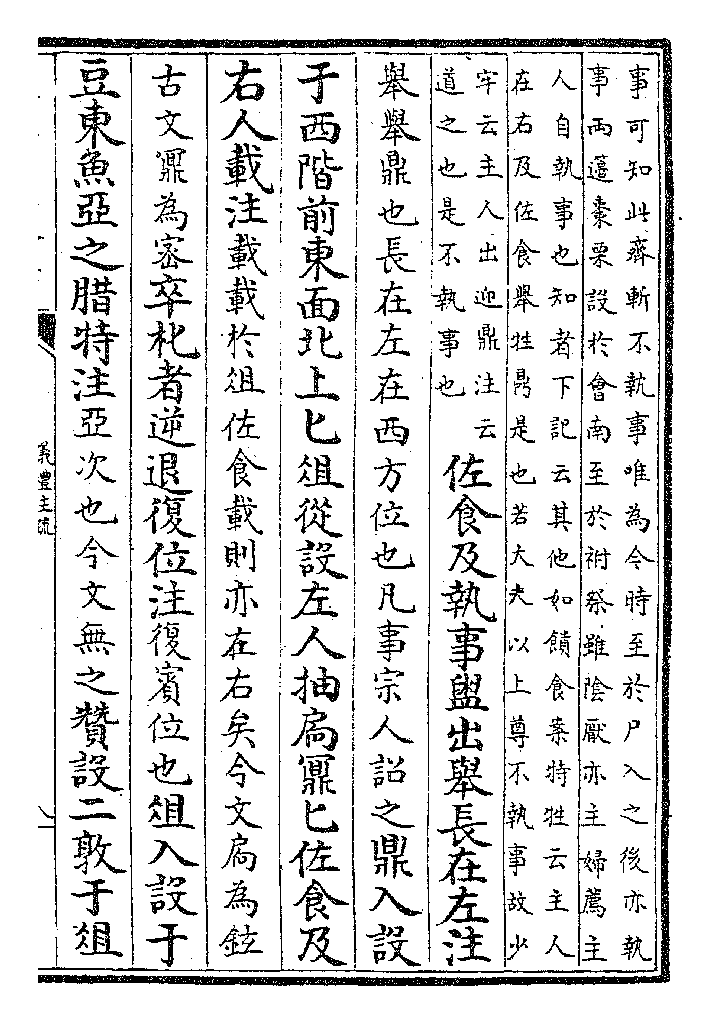 事可知此齊斬不執事唯為今時至於尸入之後亦執
事兩籩棗栗設於會南至於祔祭雖陰厭亦主婦薦主
人自執事也知者下記云其他如饋食案特牲云主人
在右及佐食舉牲鼎是也若大夫以上尊不執事故少
牢云主人出迎鼎注云
道之也是不執事也
佐食及執事盥出舉長在左注
舉舉鼎也長在左在西方位也凡事宗人詔之鼎入設
于西階前東面北上匕俎從設左人抽扃鼏匕佐食及
右人載注載載於俎佐食載則亦在右矣今文扃為鉉
古文鼏為密卒朼者逆退復位注復賓位也俎入設于
豆東魚亞之腊特注亞次也今文無之贊設二敦于俎
儀禮注疏